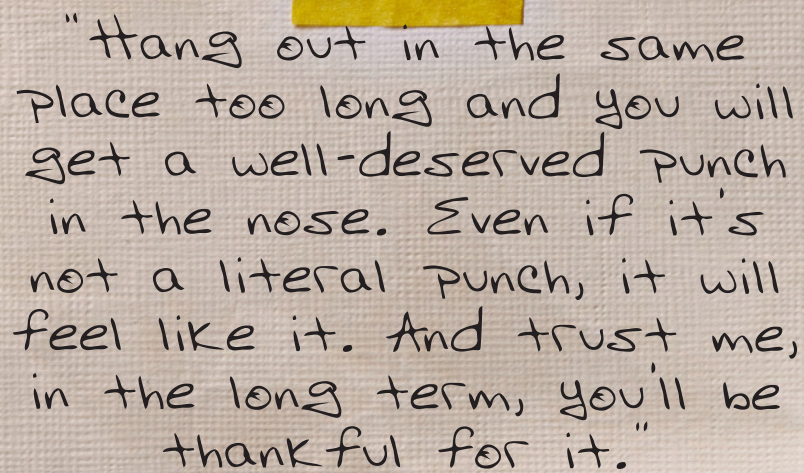 "Hang out in the same
place too long and you will
get a well-deserved punch
in the nose. Even if it's
not a literal punch, it will
feel like it. And trust me,
in the long term, you'll be
thankful for it."